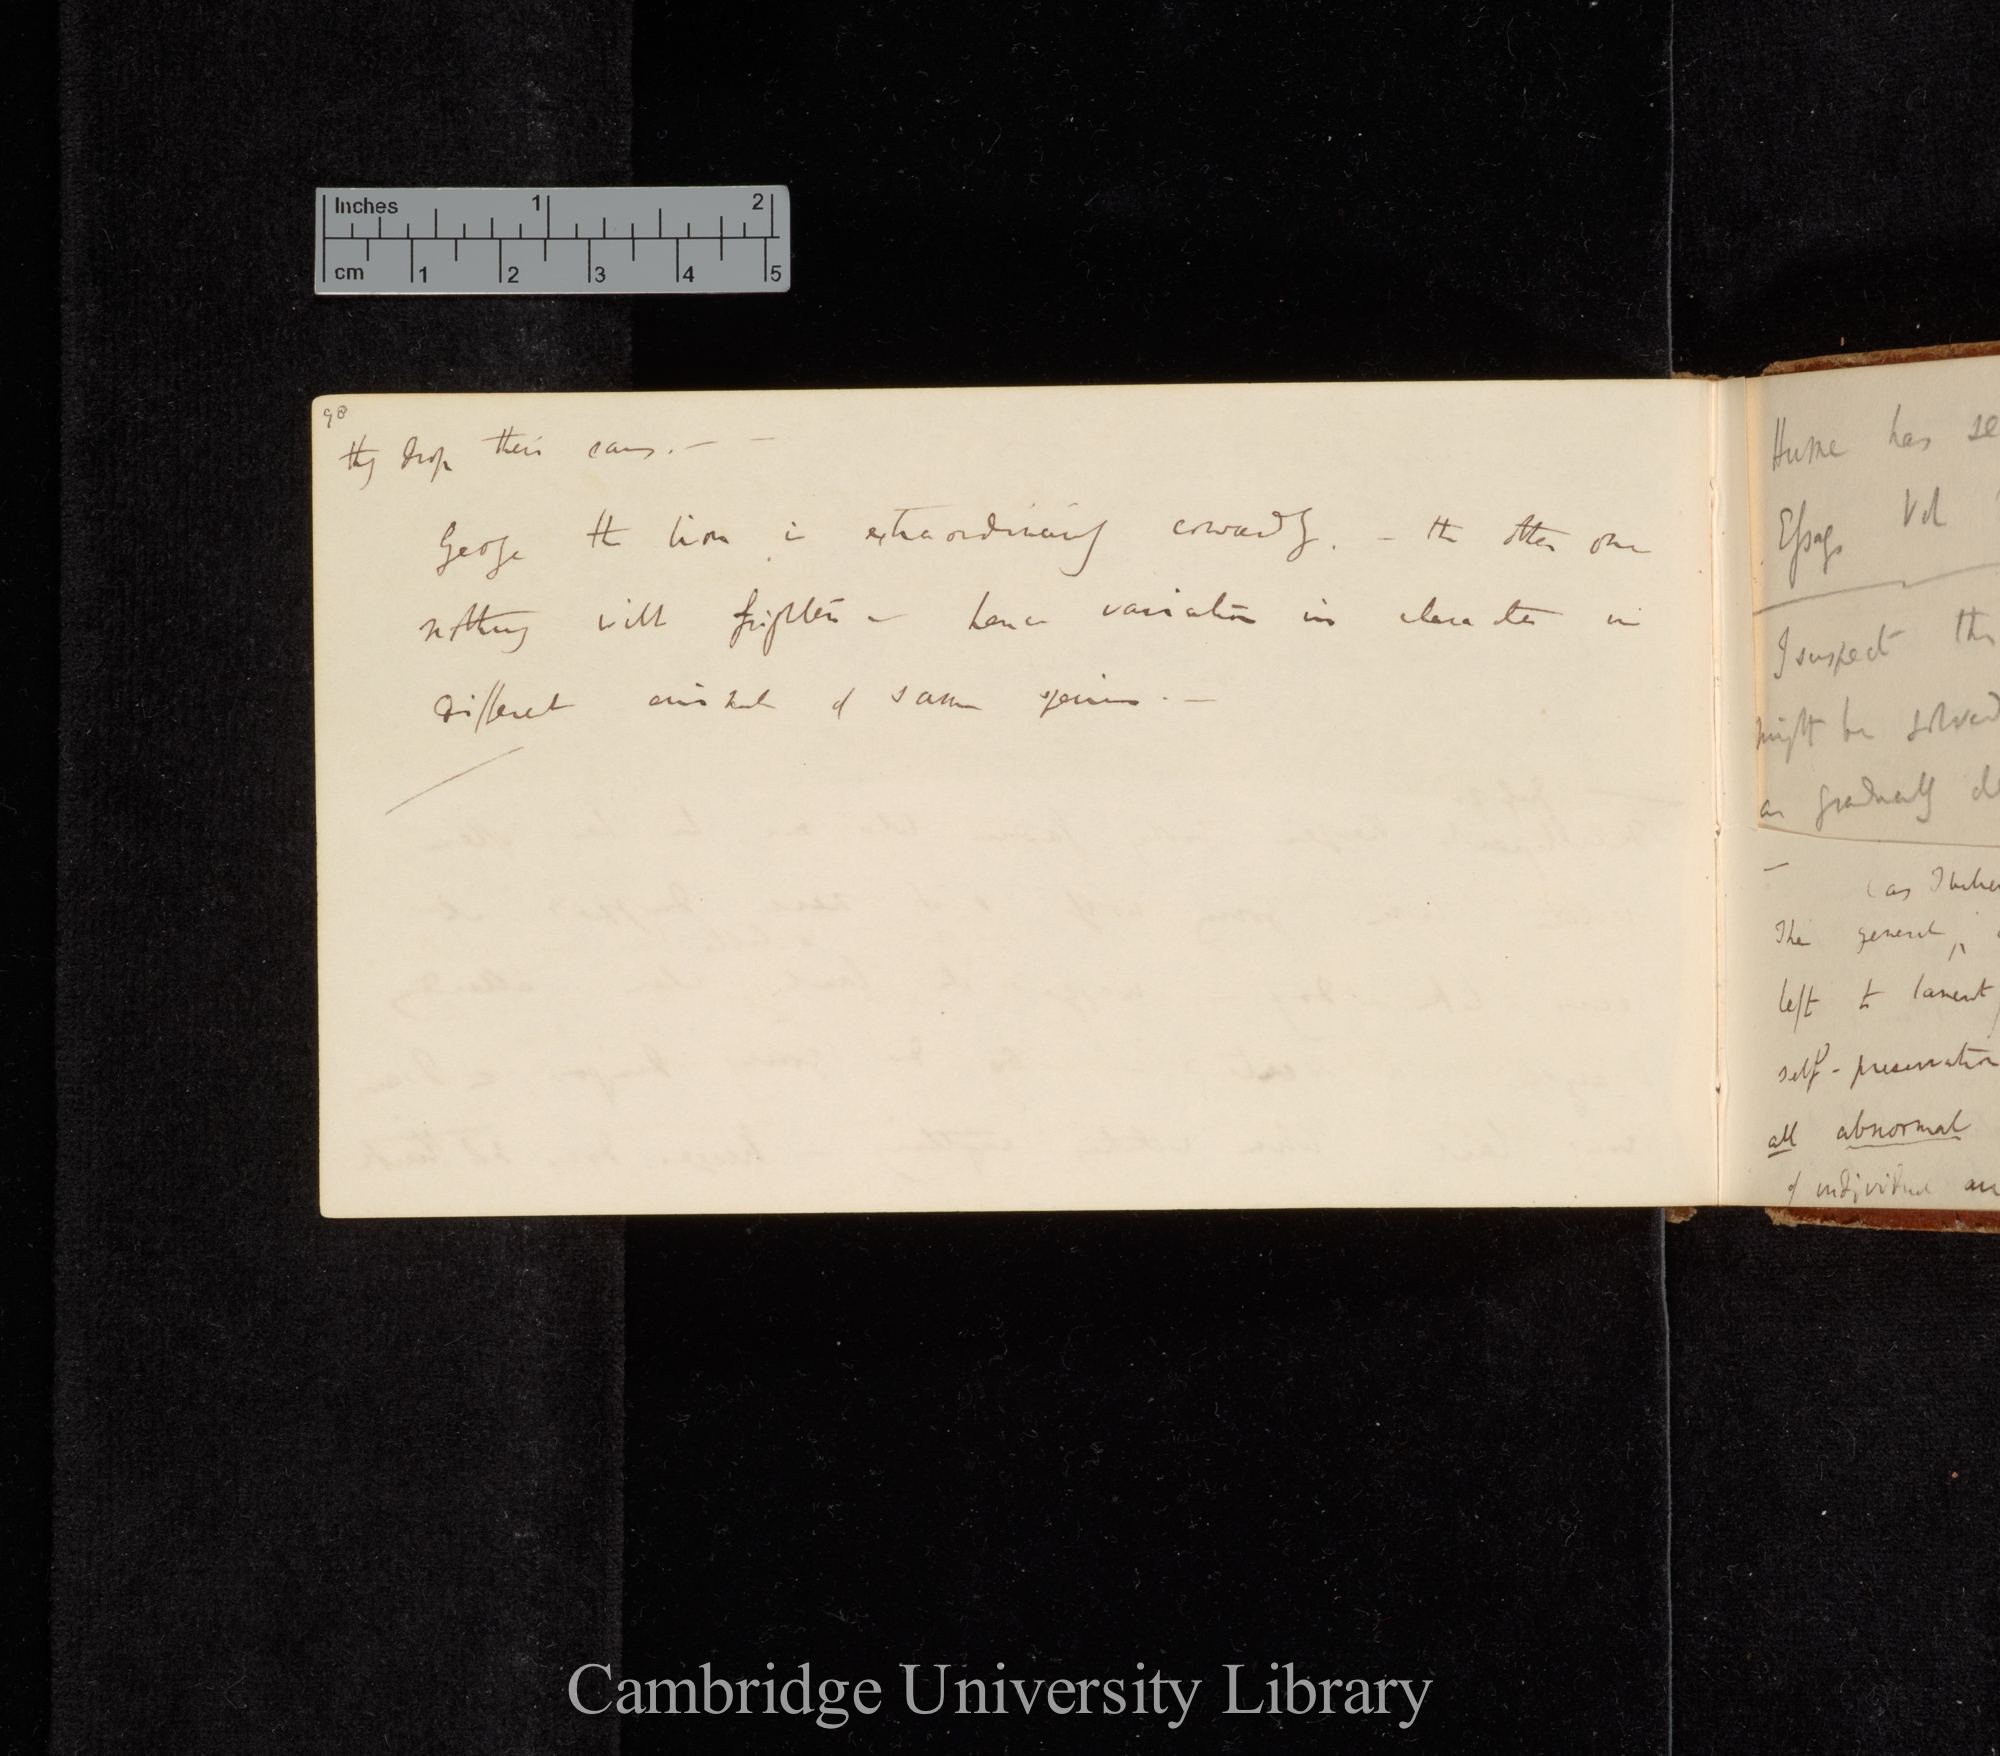 Inches 1 2
cm 1 2 3 4 5
98
they drop their ears. — —
George the lion is extraordinarily cowardly. — the other one
nothing will frighten — hence variation in character in
different animals of same species. —
Hume has se
Essays Vol
I suspect th
might be solved
as gradually de
— (as I
The general
left to lament
self-preservation
all abnormal
of individual an
Cambridge University Library